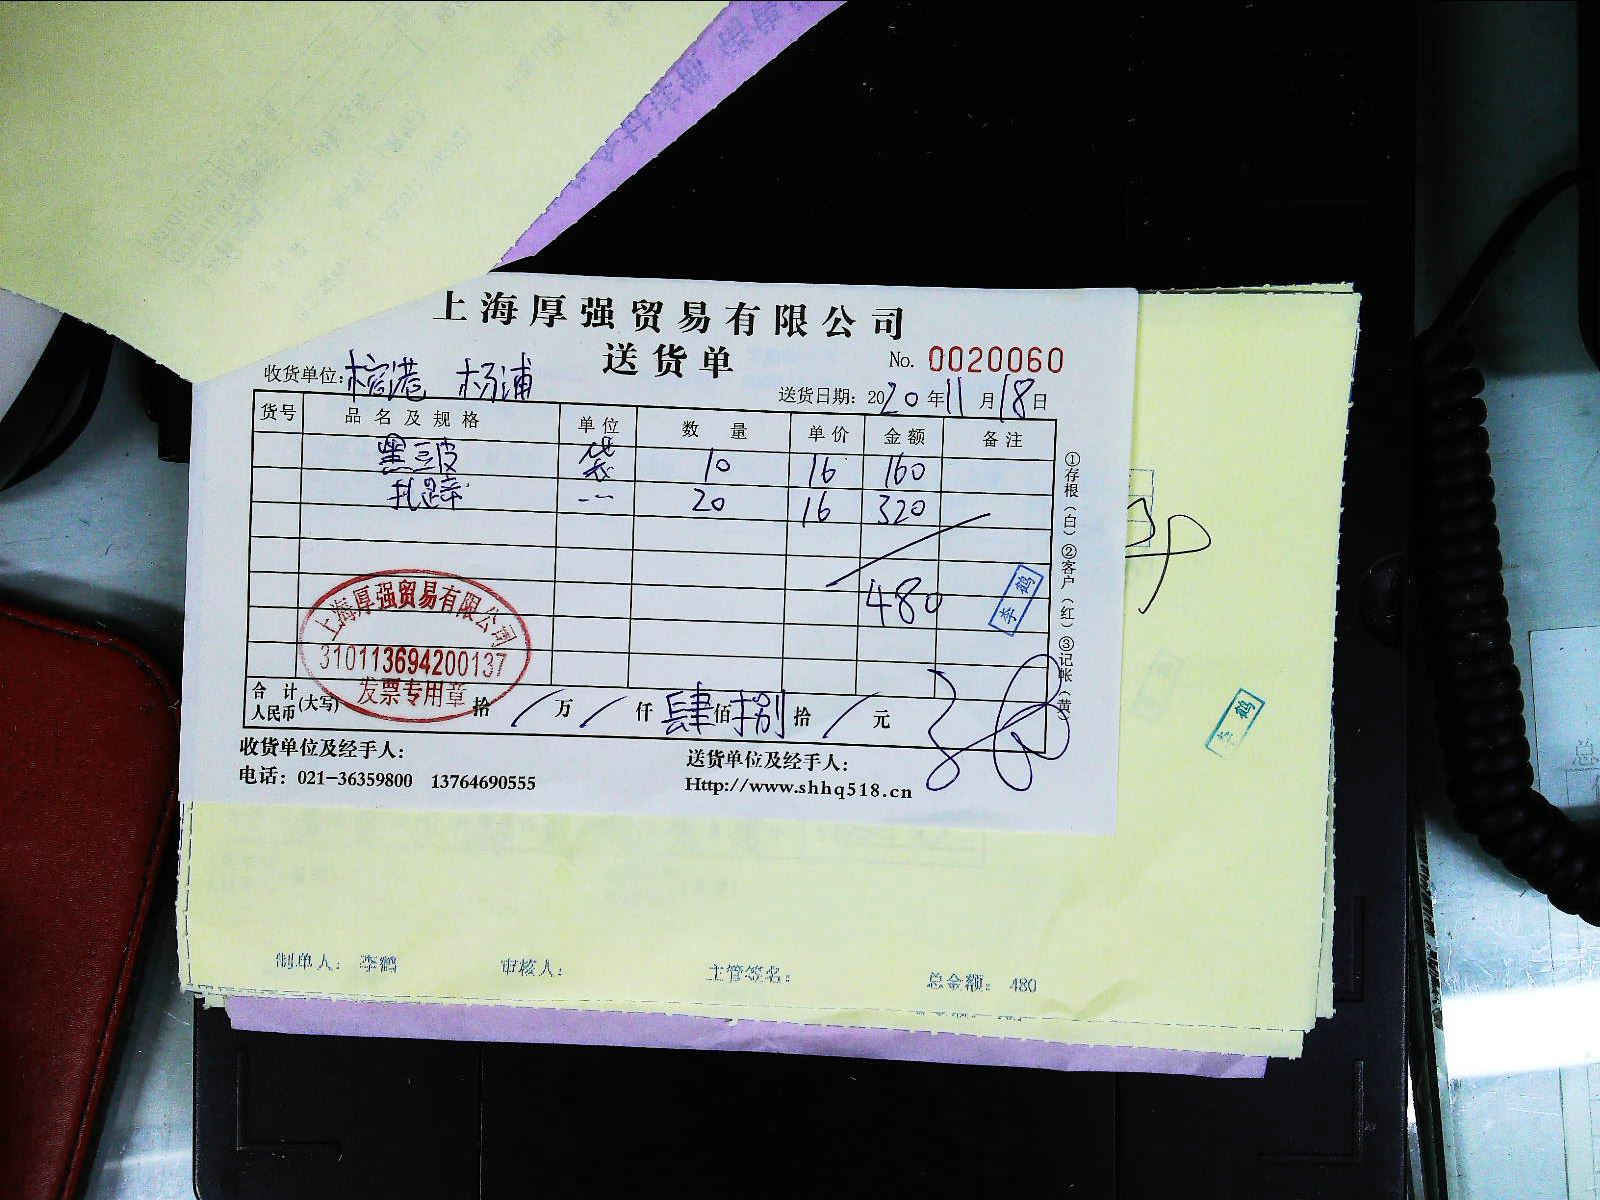 上海厚强贸易有限公司
送货单
No. 0020060
收货单位: 杨浦
送货日期: 2020年11月18日
货号 品名及规格 单位 数量 单价 金额 备注
黑三皮 袋 10 16 160
扎蹄 -- 20 16 320
480
李鹤
①存根(白)②客户(红)③记帐(黄)
上海厚强贸易有限公司
310113694200137
发票专用章
合计人民币(大写) 拾 / 万 / 仟 肆 佰 捌 拾 / 元
收货单位及经手人:
送货单位及经手人:
电话: 021-36359800 13764690555
Http://www.shhq518.cn
李鹤
制单人: 李鹤 审核人: 主管签名: 总金额: 480